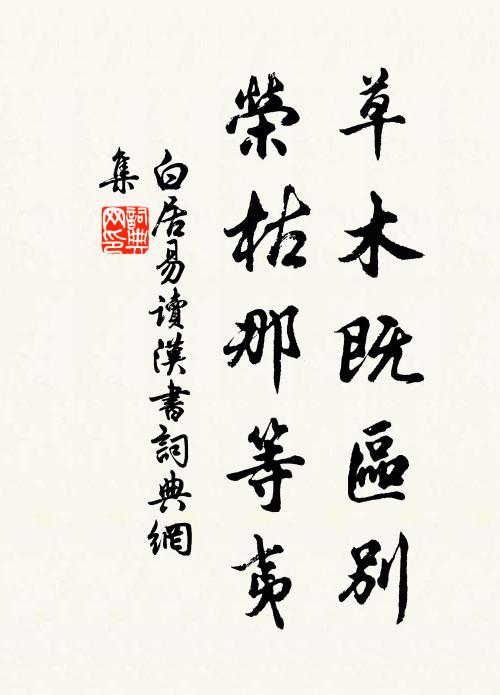 草木既區別
榮枯那等夷
白居易讀漢書詞典網
集
詞典網印